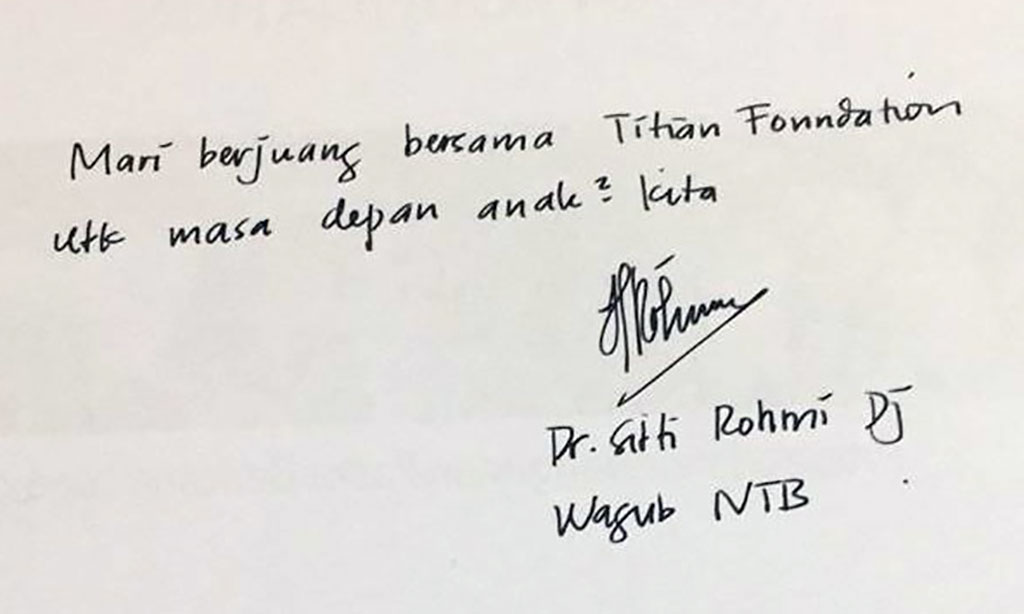 Mari berjuang bersama Titian Foundation
utk masa depan anak² kita
Dr. Sitti Rohmi Dj
Wagub NTB